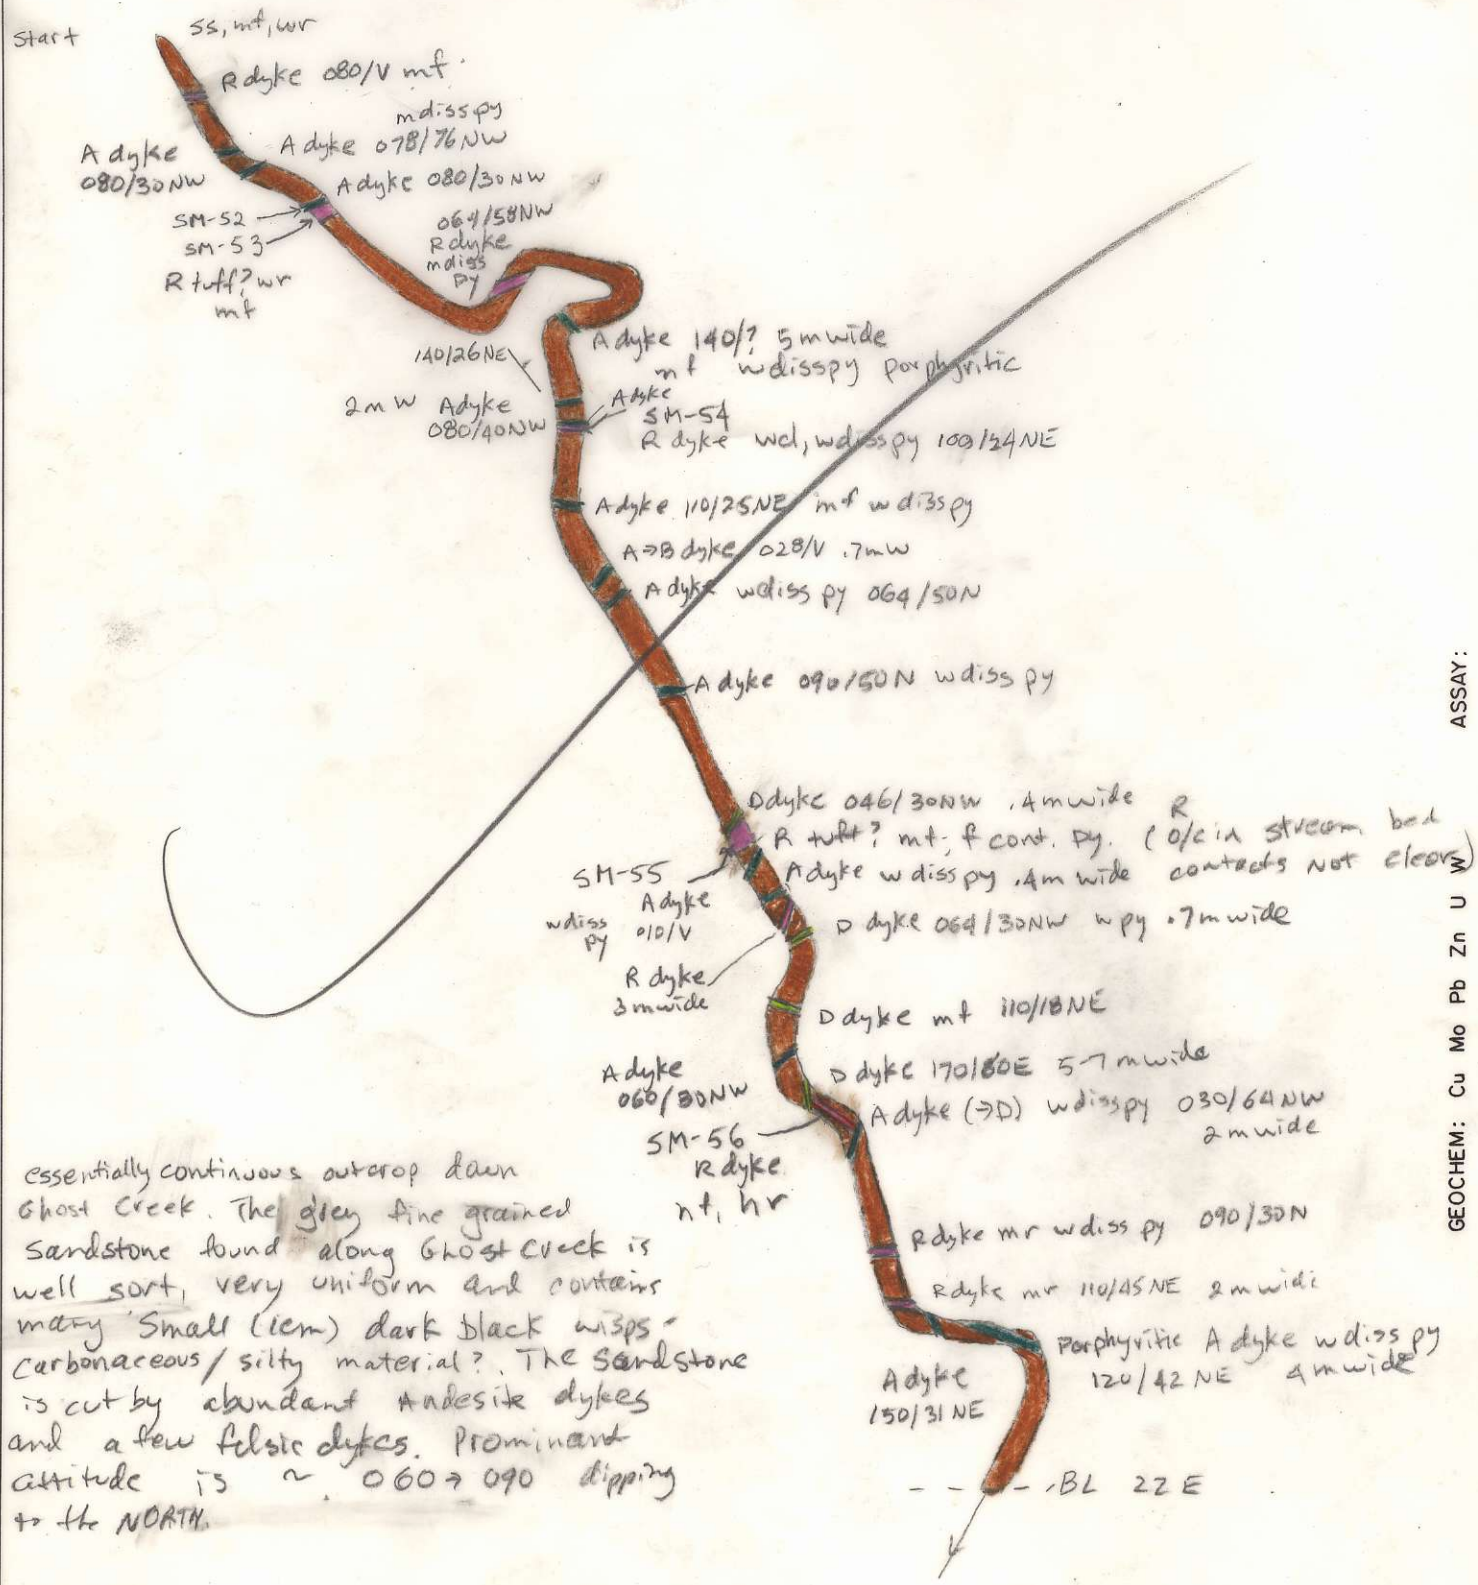 Start
ss, mf, wr
R dyke 080/V mf
mdisspy
A dyke 078/76NW
A dyke
080/30NW
A dyke 080/30NW
SM-52
SM-53
R tuff? wr
mf
064/58NW
R dyke
mdiss
py
A dyke 140/? 5m wide
mf wdisspy porphyritic
140/26NE
2m W A dyke
080/40NW
A dyke
SM-54
R dyke wcl, wdisspy 100/24NE
A dyke 110/25NE mf wdisspy
A→B dyke 028/V .7mW
A dyke wdiss py 064/50N
A dyke 090/50N wdiss py
D dyke 046/30NW .4m wide
R
R tuff? mf, f cont. py. (o/c in stream bed
contacts not clear)
SM-55
A dyke wdisspy .4m wide
A dyke
wdiss
py 010/V
D dyke 064/30NW wpy .7m wide
R dyke
3m wide
D dyke mf 110/18NE
A dyke
060/80NW
D dyke 170/80E 5-7m wide
A dyke (→D) wdisspy 030/64NW
2m wide
SM-56
R dyke
nf, hr
R dyke mr wdiss py 090/30N
R dyke mr 110/45NE 2m wide
Porphyritic A dyke wdiss py
120/42 NE 4m wide
A dyke
150/31NE
- - - - - BL 22 E
essentially continuous outcrop down
Ghost Creek. The grey fine grained
sandstone found along Ghost Creek is
well sort, very uniform and contains
many small (1cm) dark black wisps -
carbonaceous/silty material?. The Sandstone
is cut by abundant Andesite dykes
and a few felsic dykes. Prominant
attitude is ~ 060→090 dipping
to the NORTH.
GEOCHEM: Cu Mo Pb Zn U W ASSAY: